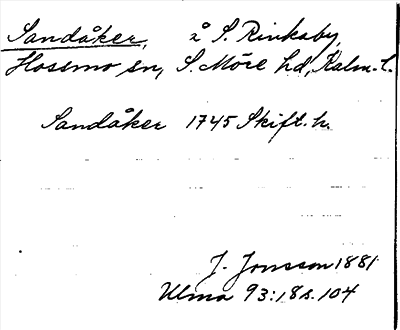 Sandåker, å S. Rinkaby,
Hossmo sn, S. Möre hd, Kalm. l.
Sandåker 1745 Skift. h.
J. Jonsson 1881
Ulma 93:18 s. 104